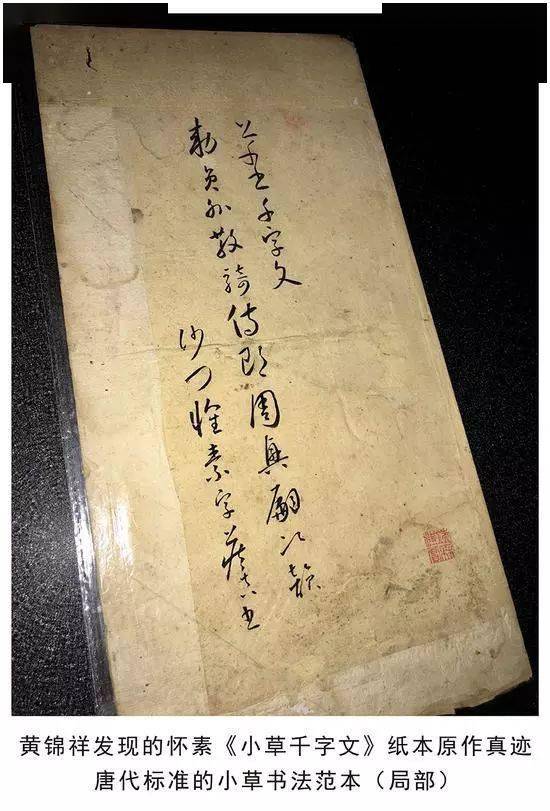 千字文
敕員外散騎侍郎周興嗣次韻
沙門懷素字藏真書
黄锦祥发现的怀素《小草千字文》纸本原作真迹
唐代标准的小草书法范本（局部）